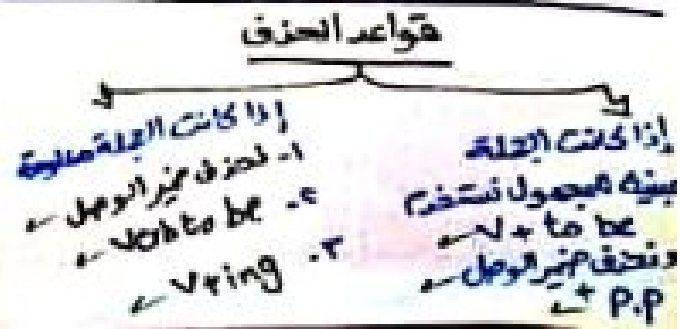 قواعد الحذف
إذا كانت الجملة مبنية للمجهول نستخدم
V + to be
ونحذف ضمير الوصل
+ P.P
إذا كانت الجملة
١- نحذف ضمير الوصل
٢- Verb to be
٣- V+ing